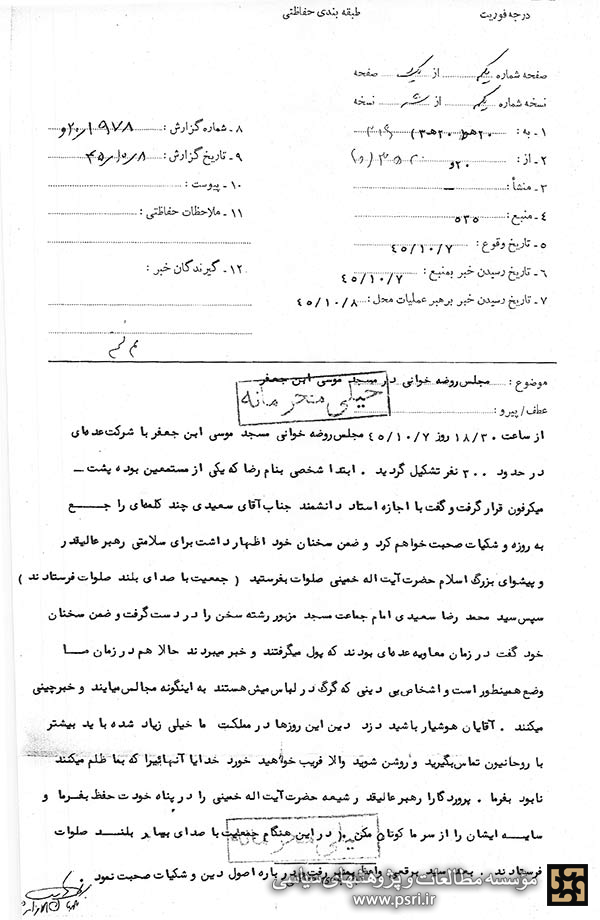 درجه فوریت
طبقه بندی حفاظتی
صفحه شماره یکم از یک صفحه
نسخه شماره یکم از نسخه
۱- به : ۲۰ هـ ۱۲
۲- از : ۲۰ و
۳- منشأ : —
۴- منبع : ۵۳۵
۵- تاریخ وقوع : ۴۵/۱۰/۷
۶- تاریخ رسیدن خبر بمنبع : ۴۵/۱۰/۷
۷- تاریخ رسیدن خبر برهبر عملیات محل : ۴۵/۱۰/۸
۸- شماره گزارش : ۲۰/۱۹۷۸و
۹- تاریخ گزارش : ۴۵/۱۰/۸
۱۰- پیوست :
۱۱- ملاحظات حفاظتی :
۱۲- گیرندگان خبر :
موضوع : مجلس روضه خوانی در مسجد موسی ابن جعفر
خیلی محرمانه
عطف/ پیرو :
از ساعت ۱۸/۳۰ روز ۴۵/۱۰/۷ مجلس روضه خوانی مسجد موسی ابن جعفر با شرکت عده‌ای
در حدود ۳۰۰ نفر تشکیل گردید . ابتدا شخصی بنام رضا که یکی از مستمعین بوده پشت
میکرفون قرار گرفت و گفت با اجازه استاد دانشمند جناب آقای سعیدی چند کلمه‌ای را جع
به روزه و شکیات صحبت خواهم کرد و ضمن سخنان خود اظهار داشت برای سلامتی رهبر عالیقدر
و پیشوای بزرگ اسلام حضرت آیت اله خمینی صلوات بفرستید ( جمعیت با صدای بلند صلوات فرستادند )
سپس سید محمد رضا سعیدی امام جماعت مسجد مزبور رشته سخن را در دست گرفت و ضمن سخنان
خود گفت در زمان معاویه عده‌ای بودند که پول میگرفتند و خبر میبردند حالا هم در زمان ما
وضع همینطور است و اشخاص بی دینی که گرگ در لباس میش هستند به اینگونه مجالس میایند و خبرچینی
میکنند . آقایان هوشیار باشید دزد دین این روزها در مملکت ما خیلی زیاد شده باید بیشتر
با روحانیون تماس بگیرید و روشن شوید والا فریب خواهید خورد خدایا آنهائیرا که بما ظلم میکنند
نابود بفرما . پروردگارا رهبر عالیقدر شیعه حضرت آیت اله خمینی را در پناه خودت حفظ بفرما و
سایه ایشان را از سر ما کوتاه مکن . ( در این هنگام جمعیت با صدای بسیار بلند صلوات
فرستادند . بعد سید برقعی واعظ بمنبر رفت و درباره اصول دین و شکیات صحبت نمود
خیلی محرمانه
مؤسسه مطالعات و پژوهشهای سیاسی
www.psri.ir